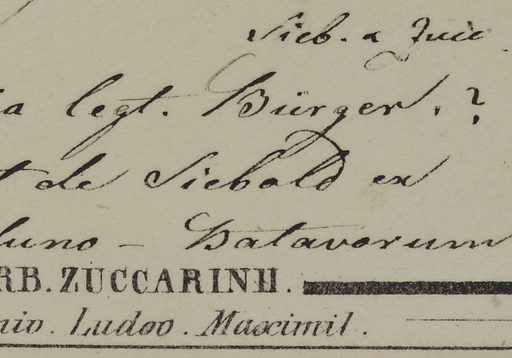 Sieb. a Zucc
ia legt. Bürger. ?
t de Siebold ex
luno - Batavorum
RB. ZUCCARINII.
nio. Ludov. Maximil.